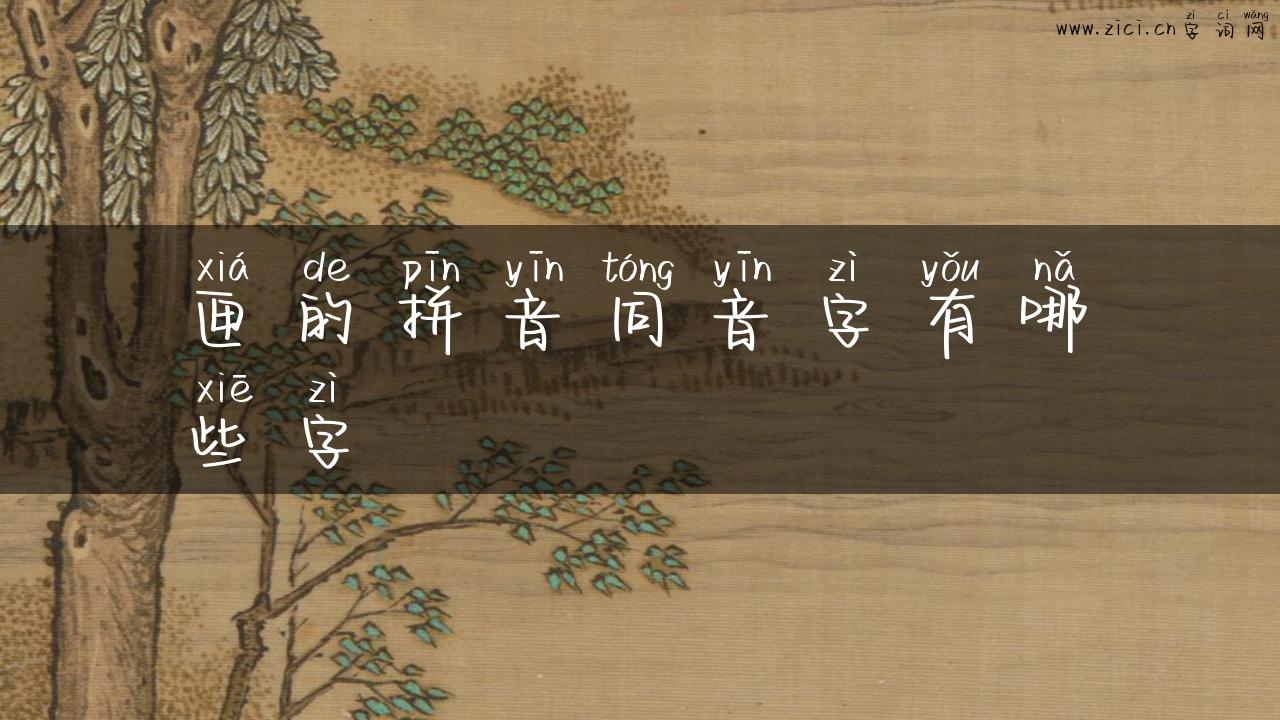 zì cí wǎng
www.zici.cn 字词网
xiá de pīn yīn tóng yīn zì yǒu nǎ
匣的拼音同音字有哪
xiē zì
些字